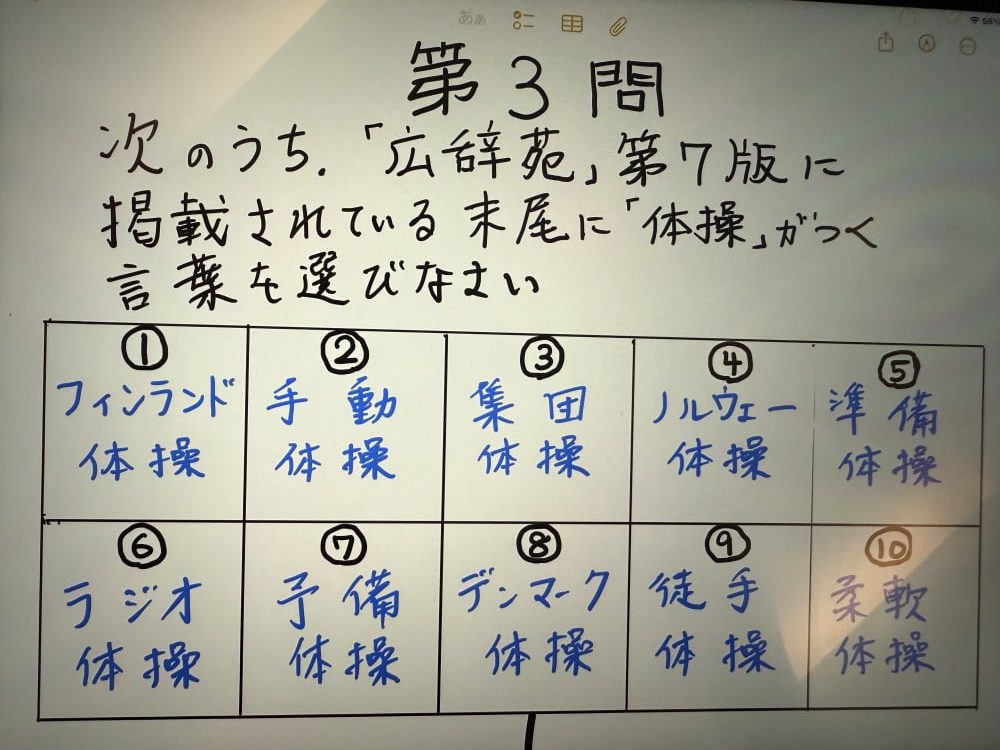 あぁ
56%
第3問
次のうち.「広辞苑」第7版に
掲載されている末尾に「体操」がつく
言葉を選びなさい
①
フィンランド
体操
②
手動
体操
③
集団
体操
④
ノルウェー
体操
⑤
準備
体操
⑥
ラジオ
体操
⑦
予備
体操
⑧
デンマーク
体操
⑨
徒手
体操
⑩
柔軟
体操